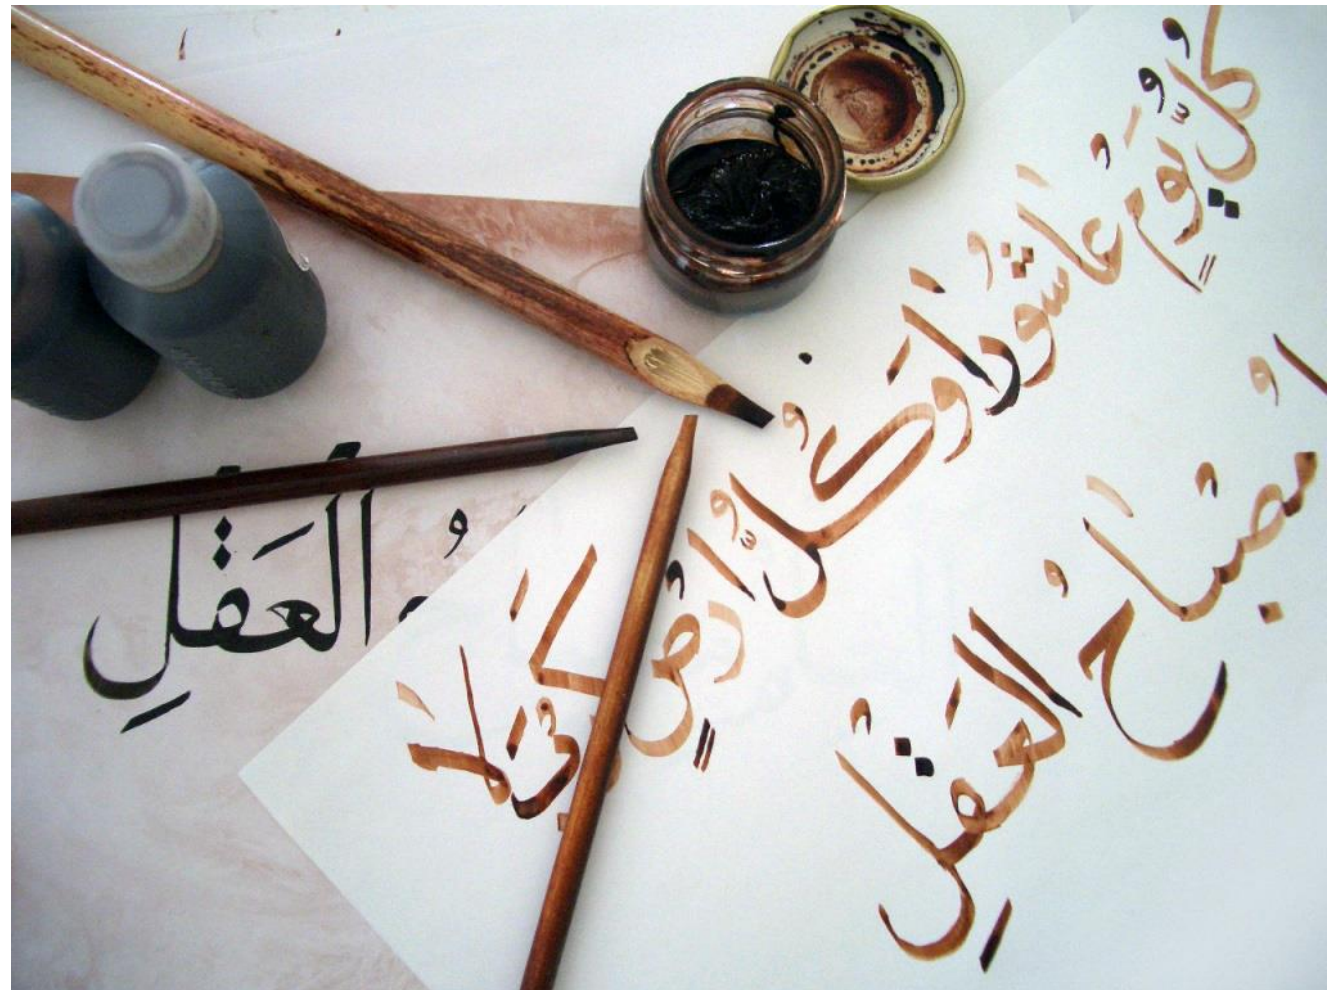 كُلُّ يَوْمٍ عَاشُورَا وَكُلُّ ارْضٍ كَرْبَلَا
مُصْبَاحُ العَقْلِ
العَقلِ